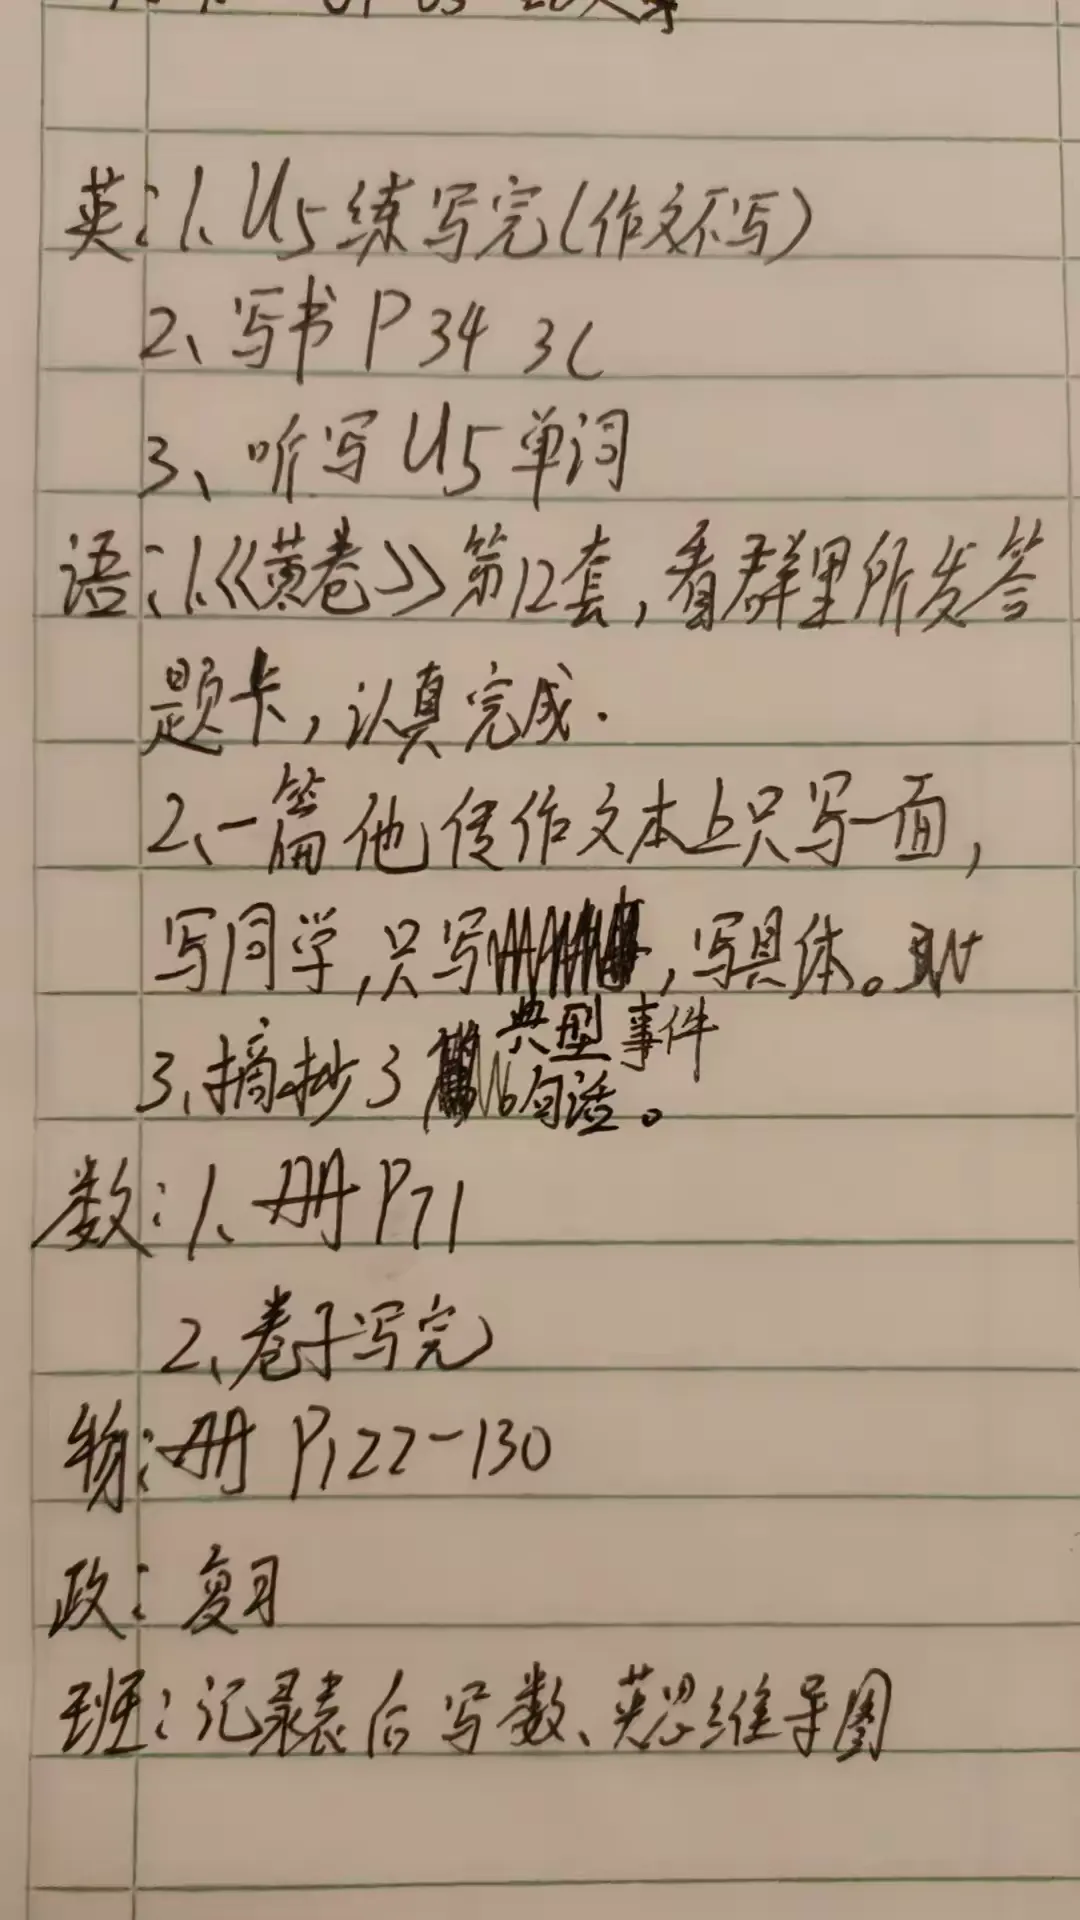 英:1、U5练写完(作文不写)
2、写书P34 3C
3、听写U5单词
语:1.《黄卷》第12套,看群里所发答
题卡,认真完成.
2、一篇他传作文本上只写一面,
写同学,只写,写具体。
典型事件
3.摘抄3句话。
数:1、册P71
2、卷子写完
物:册P122-130
政:复习
班:记录表后写数、英思维导图